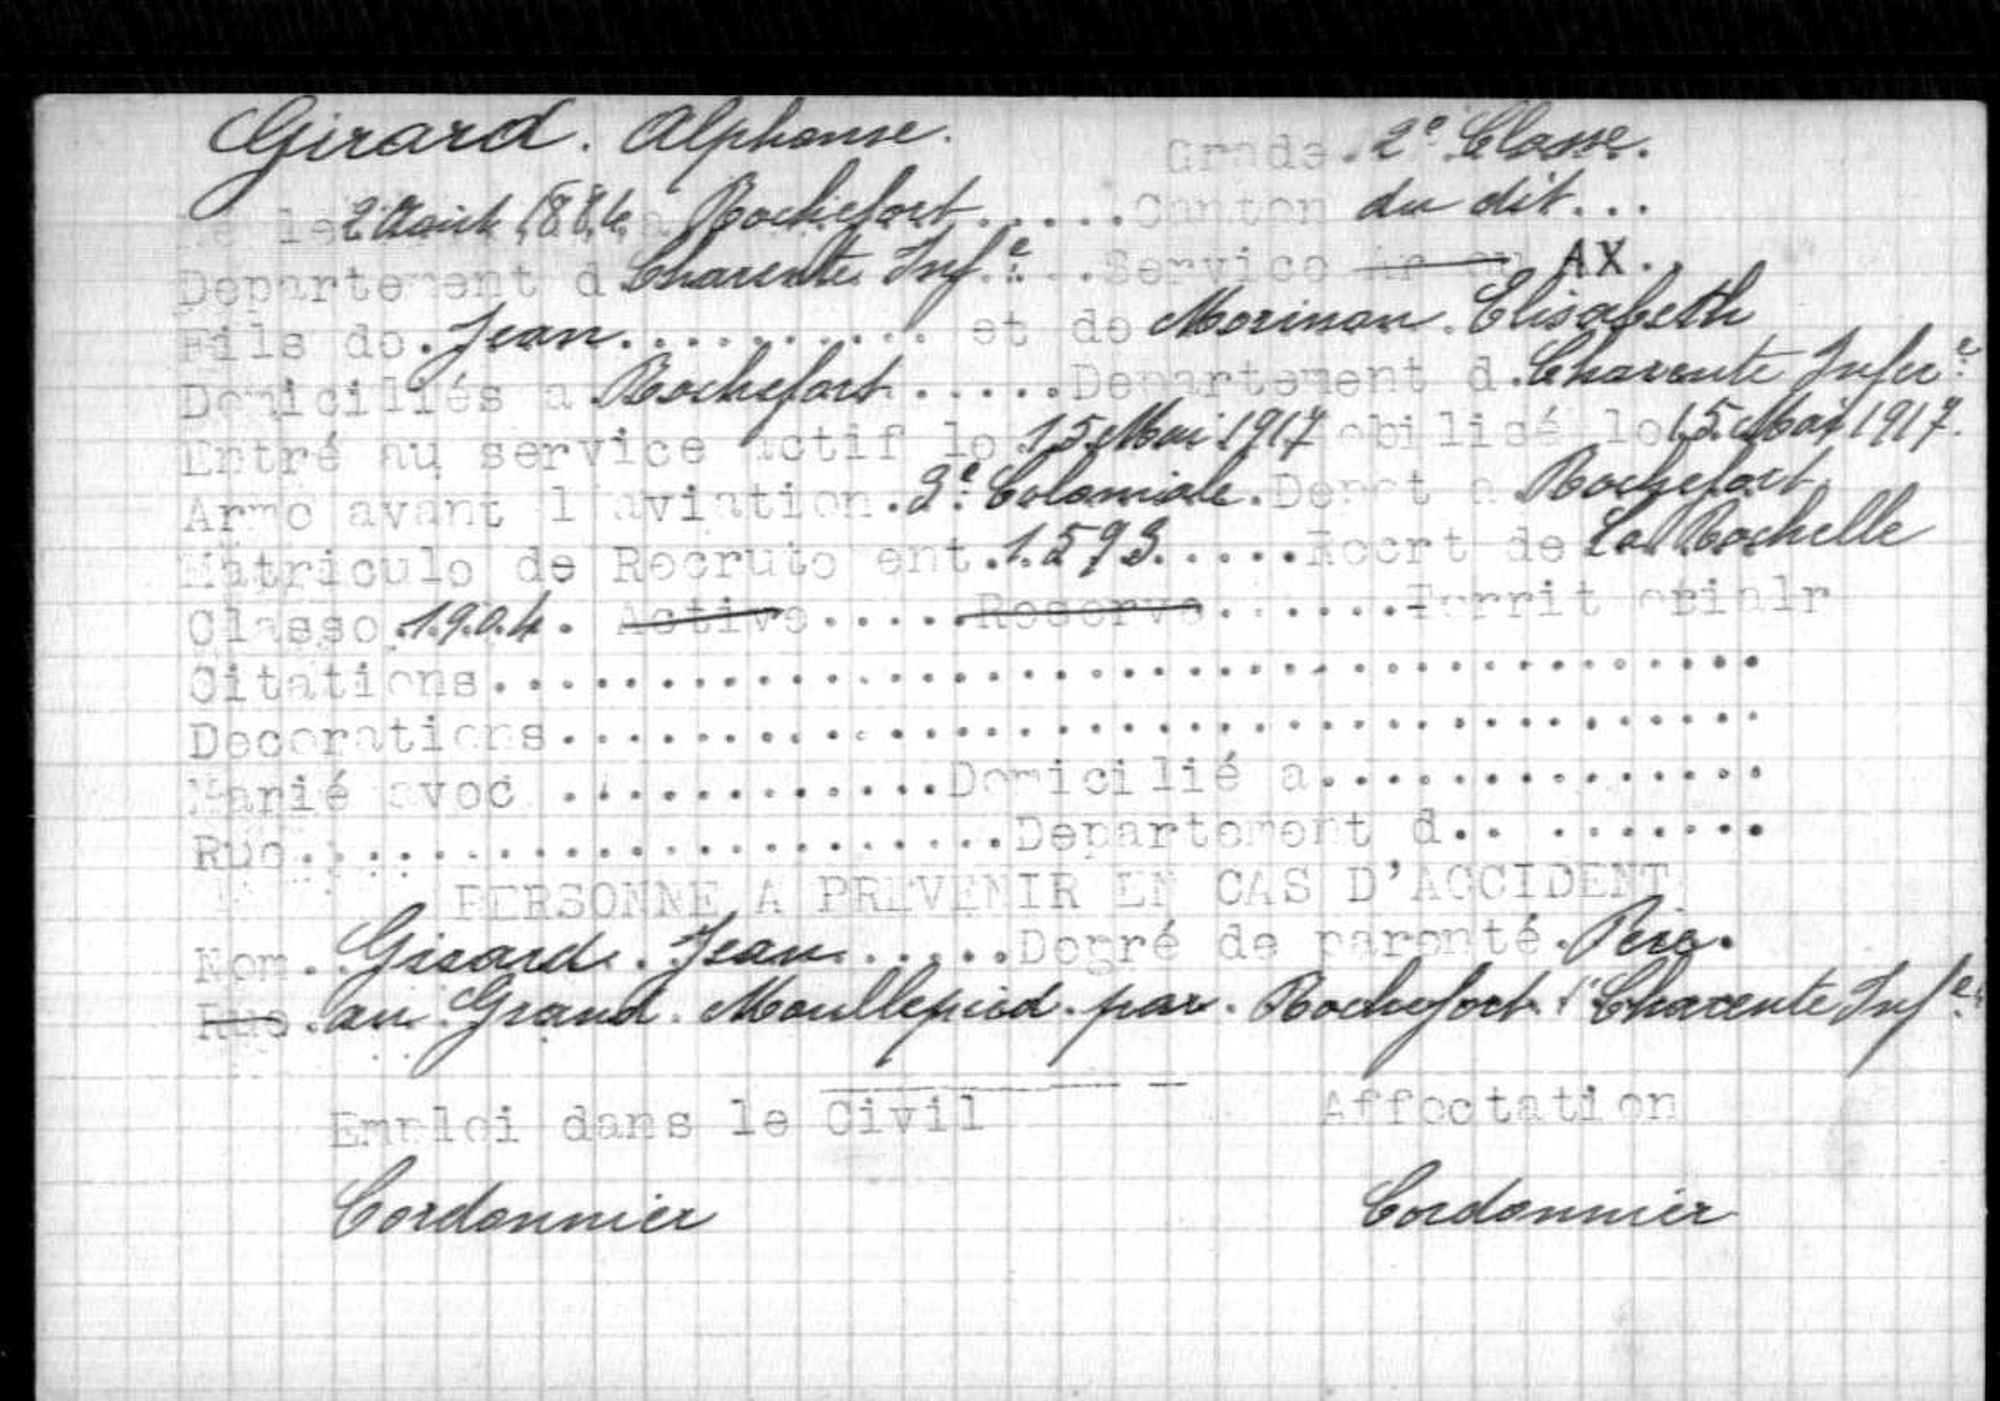 Girard. Alphonse. Grade. 2e Classe.
Né le 2 Août 1884 a Rochefort.....Canton du dit...
Departement d Charente Infre...Service AX.
Fils de.Jean.......... et de Morinon. Elisabeth
Domiciliés a Rochefort.....Departement d.Charente Inferre
Entré au service actif le 15 Mai 1917 mobilisé le 15 Mai 1917.
Arme avant l'aviation.3e Coloniale.Depot a Rochefort.
Matricule de Recrutement.1.593.....Recrt de La Rochelle
Classe.1904. Active.....Reserve......Territorialr
Citations.......................................
Decorations.....................................
Marié avec ............Domicilié a..............
Rue......................Departement d.. .......
PERSONNE A PREVENIR EN CAS D'ACCIDENT
Nom. Girard. Jean.....Degré de parenté.Père.
Rue.au Grand. Moullepied.par. Rochefort. Charente Infre.
Emploi dans le Civil Affectation
Cordonnier Cordonnier